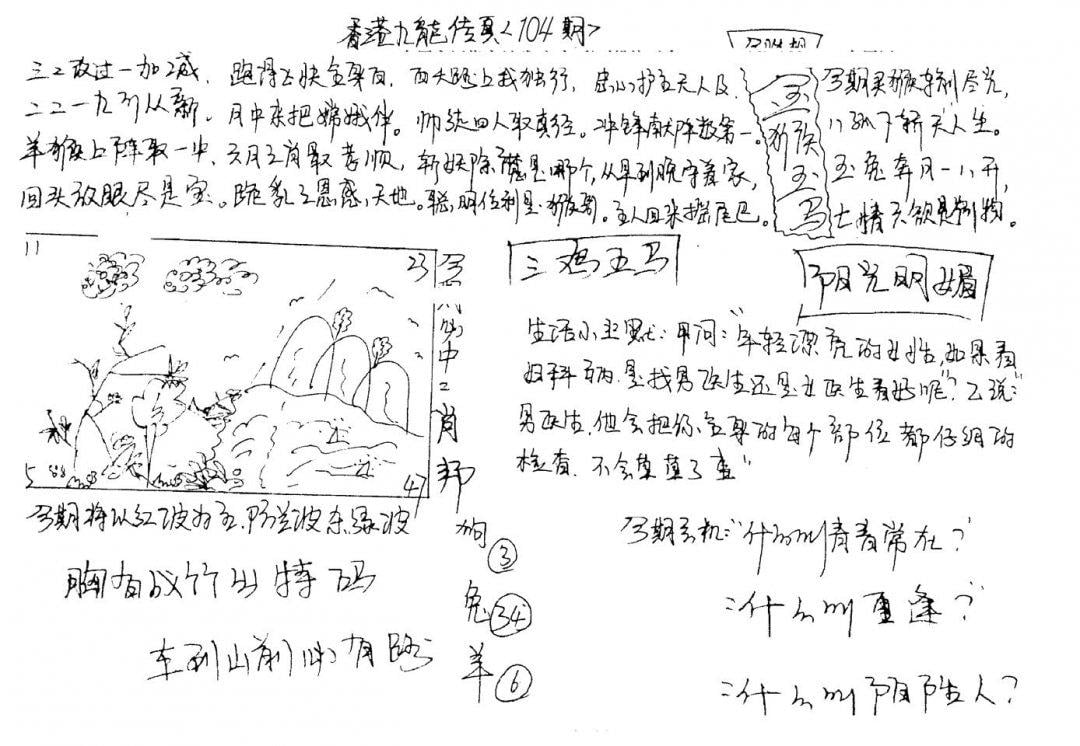 香港九龍传真<104期>
三二放过一加2减、跑得飞快全身白、西天路上我独行，忠心护主天人及、
二二一九引从新、月中来把嫦娥伴。师徒四人取真经。冲锋献阵数第一。
羊猴上阵取一中、六月之前最孝顺，斩妖除魔是哪个，从早到晚守着家，
回头放眼尽是宝。跪乳之恩感天地。聪明伶利是猴哥。主人回来摇尾巴。
玉
猴
玉
马
今期买猴车制尽光，
玉兔奔月一八开，
七情六欲是制物。
11
23
5
47
今
中
二
肖
邦
三鸡五马
阳光明媚
生活小幽默：甲问："年轻漂亮的女性，如果看
妇科病、是找男医生还是女医生看好呢"？乙说："
男医生、他会把你全身的每个部位都仔细的
检查、不会草草了事"
今期将以红波为主、防兰波杀绿波
胸有成竹出特码
车到山前必有路
狗③
兔㉞
羊⑥
今期玄机："什么叫青春常在？
：什么叫重逢？
：什么叫阴阳人？